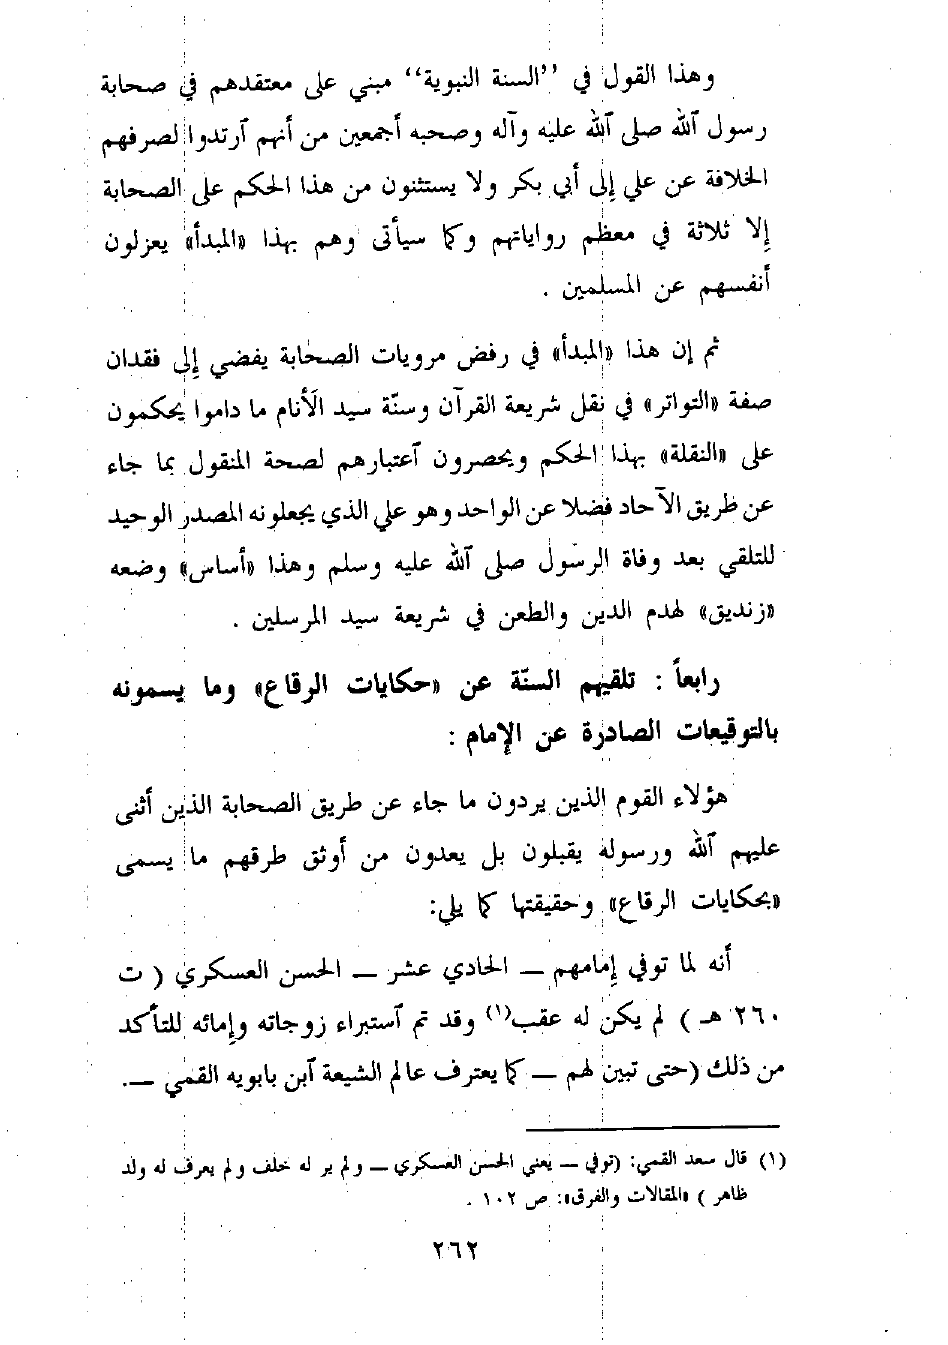 وهذا القول في ’’السنة النبوية‘‘ مبني على معتقدهم في صحابة
رسول ٱلله صلى ٱلله عليه وآله وصحبه أجمعين من أنهم ٱرتدوا لصرفهم
الخلافة عن علي إلى أبي بكر ولا يستثنون من هذا الحكم على الصحابة
إلا ثلاثة في معظم رواياتهم وكما سيأتى وهم بهذا «المبدأ» يعزلون
أنفسهم عن المسلمين .
ثم إن هذا «المبدأ» في رفض مرويات الصحابة يفضي إلى فقدان
صفة «التواتر» في نقل شريعة القرآن وسنّة سيد الأنام ما داموا يحكمون
على «النقلة» بهذا الحكم ويحصرون ٱعتبارهم لصحة المنقول بما جاء
عن طريق الآحاد فضلا عن الواحد وهو علي الذي يجعلونه المصدر الوحيد
للتلقي بعد وفاة الرسول صلى ٱلله عليه وسلم وهذا «أساس» وضعه
«زنديق» لهدم الدين والطعن في شريعة سيد المرسلين .
رابعاً : تلقيهم السنّة عن «حكايات الرقاع» وما يسمونه
بالتوقيعات الصادرة عن الإمام :
هؤلاء القوم الذين يردون ما جاء عن طريق الصحابة الذين أثنى
عليهم ٱلله ورسوله يقبلون بل يعدون من أوثق طرقهم ما يسمى
«بحكايات الرقاع» وحقيقتها كما يلي:
أنه لما توفي إمامهم — الحادي عشر — الحسن العسكري ( ت
٢٦٠ هـ ) لم يكن له عقب(١) وقد تم ٱستبراء زوجاته وإمائه للتأكد
من ذلك (حتى تبين لهم — كما يعترف عالم الشيعة ٱبن بابويه القمي —.
(١) قال سعد القمي: (توفي — يعني الحسن العسكري — ولم ير له خلف ولم يعرف له ولد
ظاهر ) «المقالات والفرق»: ص ١٠٢ .
٢٦٢